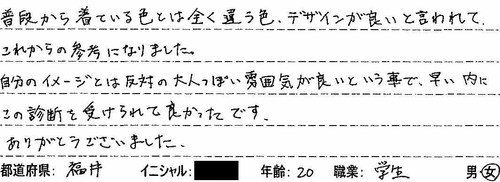 普段から着ている色とは全く違う色、デザインが良いと言われて、
これからの参考になりました。
自分のイメージとは反対の大人っぽい雰囲気が良いという事で、早い内に
この診断を受けられて良かったです。
ありがとうございました。
都道府県: 福井 イニシャル: 年齢: 20 職業: 学生 男・女